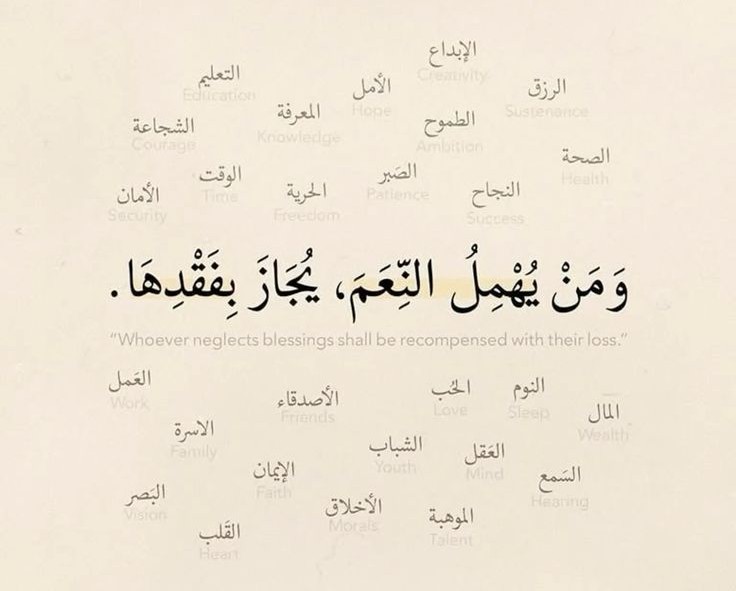 الإبداع
Creativity
التعليم
Education
الأمل
Hope
الرزق
Sustenance
المعرفة
Knowledge
الطموح
Ambition
الشجاعة
Courage
الصحة
Health
الوقت
Time
الصَبر
Patience
الحرية
Freedom
النجاح
Success
الأمان
Security
وَمَنْ يُهْمِلُ النِّعَمَ، يُجَازَ بِفَقْدِهَا.
“Whoever neglects blessings shall be recompensed with their loss.”
العَمل
Work
الأصدقاء
Friends
الحُب
Love
النوم
Sleep
المال
Wealth
الاسرة
Family
الشباب
Youth
العَقل
Mind
الإيمان
Faith
السَمع
Hearing
البَصر
Vision
الأخلاق
Morals
الموهبة
Talent
القَلب
Heart